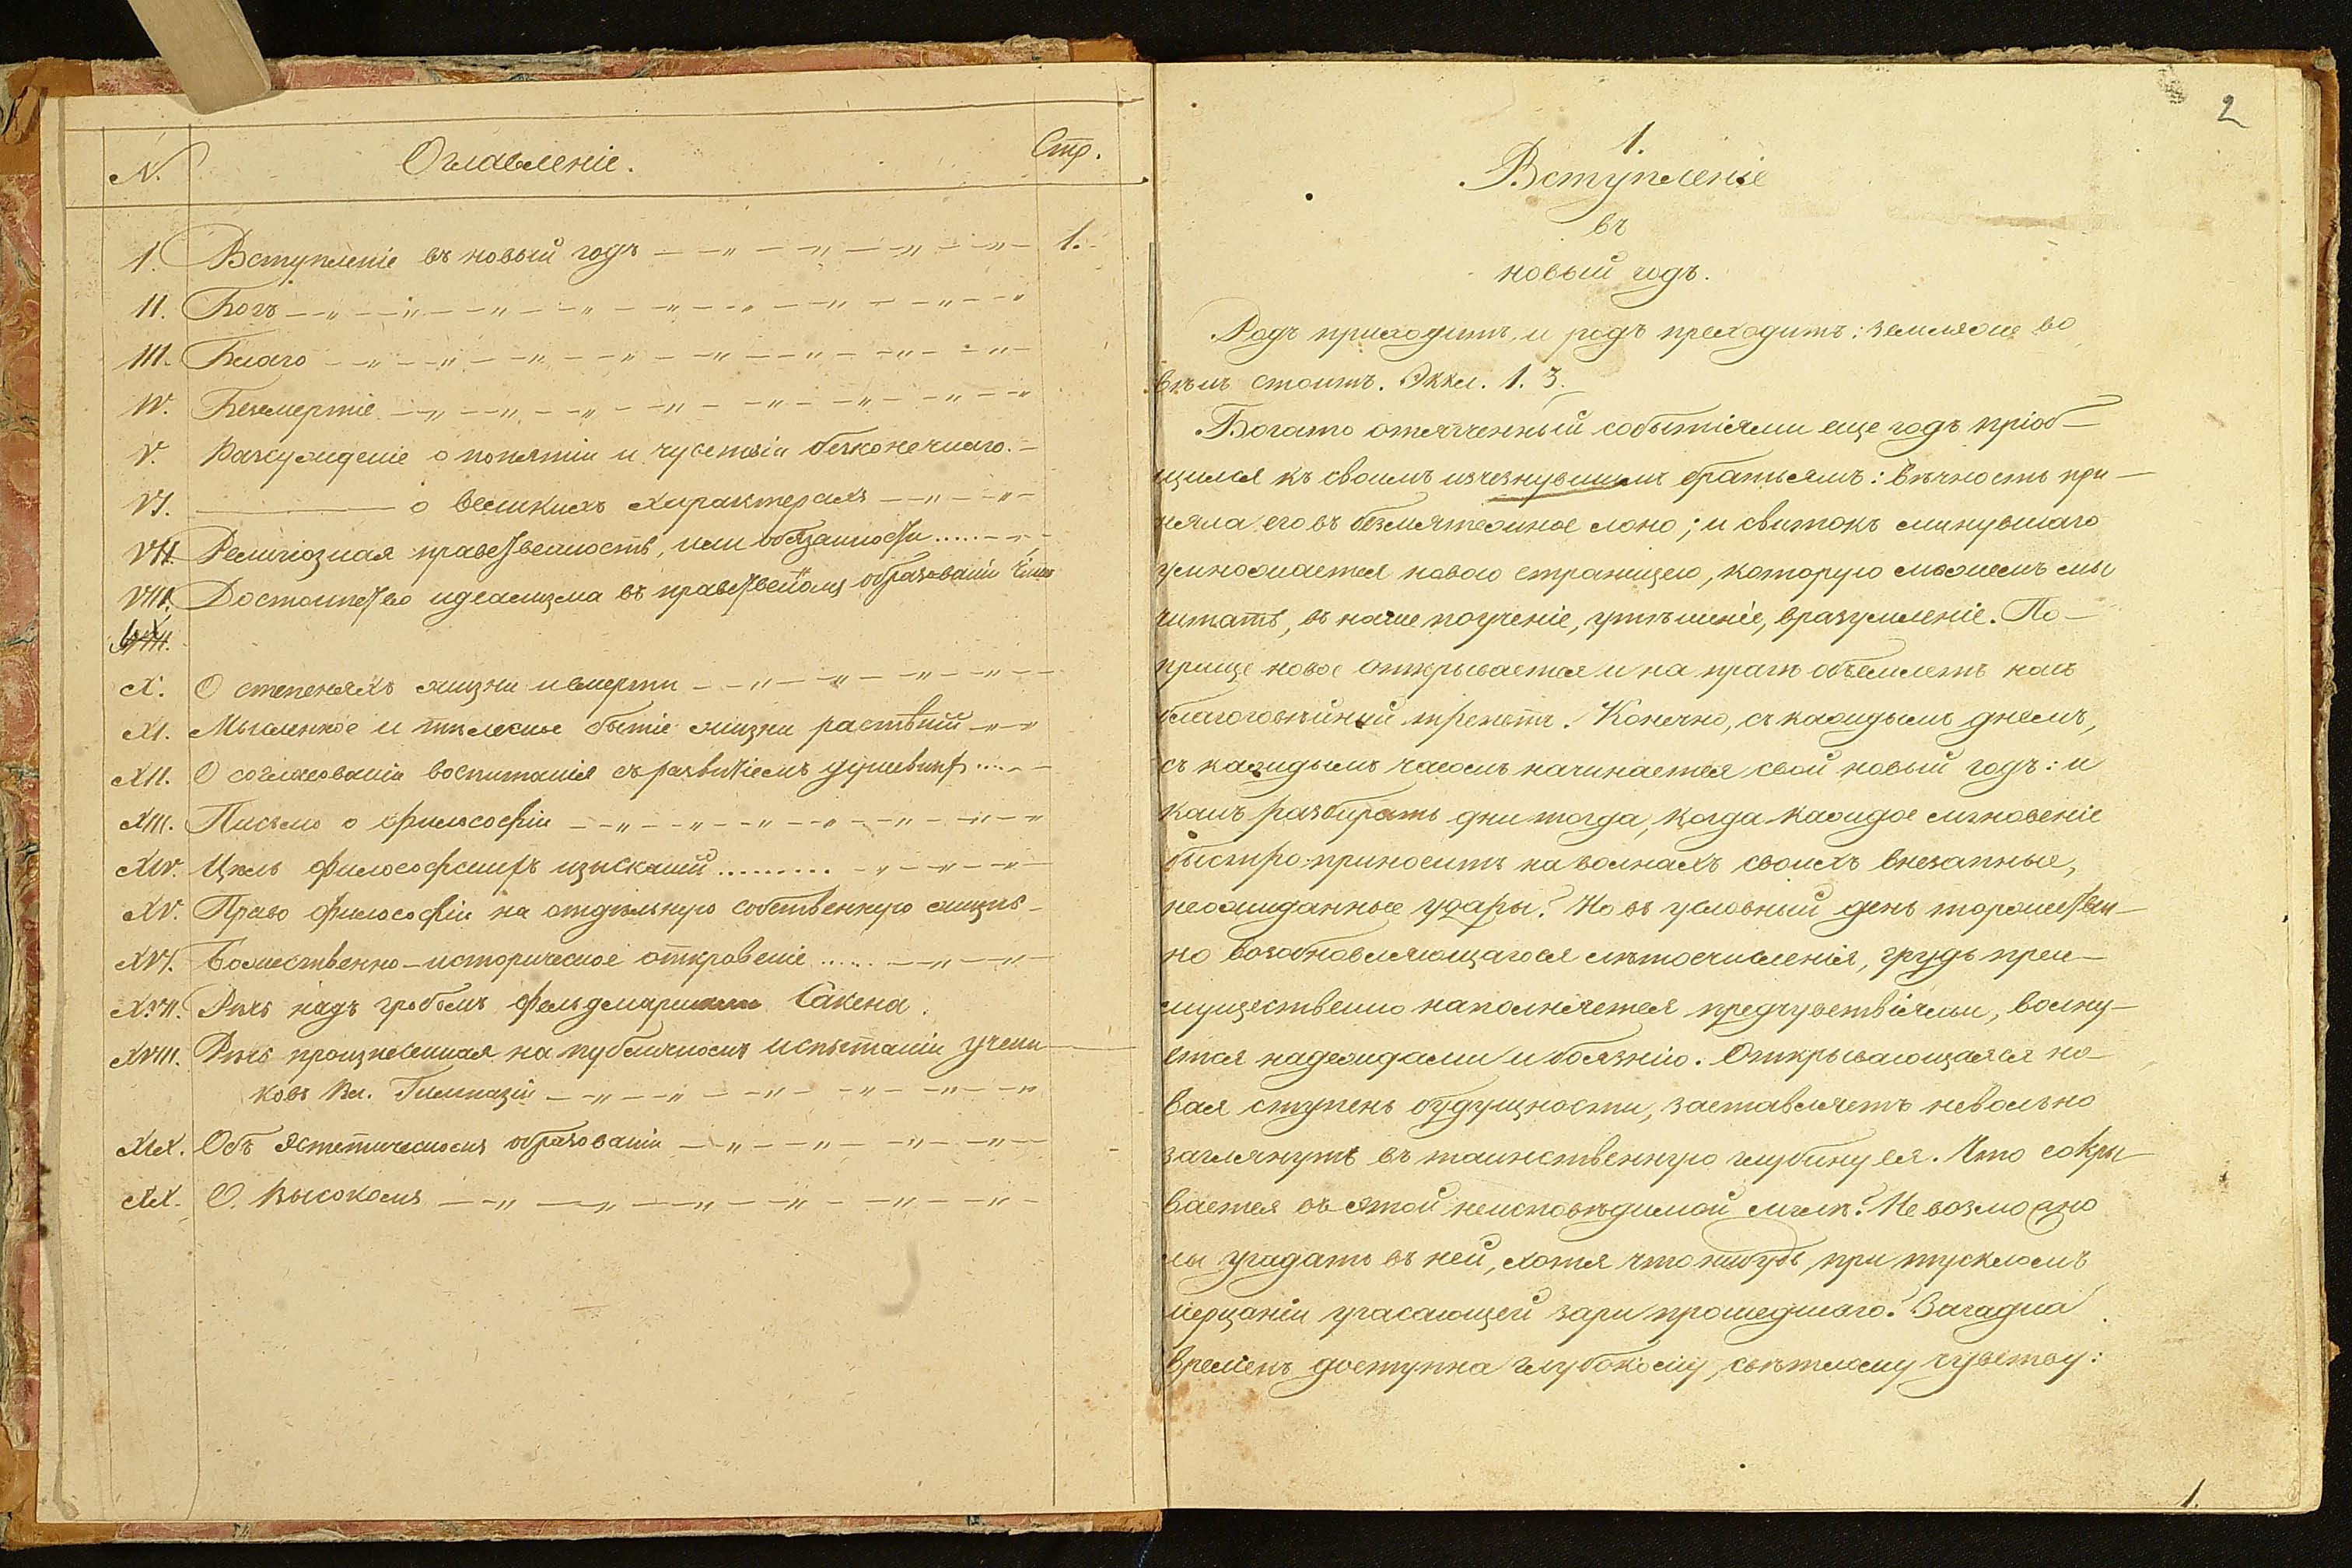 N. Оглавленіе. Стр.
1. Вступленіе въ новый годъ — „ — „ — „ — „ — 1.
II. Богъ — „ — „ — „ — „ — „ — „ — „ — „
III. Благо — „ — „ — „ — „ — „ — „ — „ — „ —
IV. Безсмертіе — „ — „ — „ — „ — „ — „ — „ — „
V. Разсужденіе о понятіи и чувствіи безконечнаго. —
VI. ——— о великихъ характерахъ — „ — „ —
VII. Религіозная нравственность, или обязанности ..... — „ —
VIII. Достоинство идеализма въ нравственномъ образованіи
X. О степеняхъ жизни и смерти — „ — „ — „ — „ —
XI. Мысленное и тѣлесное бытіе жизни растѣній — „
XII. О согласованіи воспитанія съ развитіемъ душевныхъ ....
XIII. Письмо о философіи — „ — „ — „ — „ — „ — „ — „
XIV. Цѣль философскихъ изысканій ......... — „ — „ — „ —
XV. Право философіи на отдѣльную собственную жизнь —
XVI. Божественно-историческое откровеніе ...... — „ — „ —
XVII. Рѣчь надъ гробомъ Фельдмаршала Сакена.
XVIII. Рѣчь произнесенная на публичномъ испытаніи учени-
ковъ Кл. Гимназіи — „ — „ — „ — „ — „ — „
XIX. Объ эстетическомъ образованіи — „ — „ — „ — „ —
XX. О Высокомъ — „ — „ — „ — „ — „ — „ —
2
1.
Вступленіе
въ
новый годъ.
Родъ приходитъ, и родъ преходитъ: земля же во
вѣкъ стоитъ. Эккл. 1. 3.
Богато отягченный событіями еще годъ пріоб-
щился къ своимъ изчезнувшимъ братьямъ: вѣчность при-
няла его въ безмятежное лоно; и свитокъ минувшаго
умножается новою страницею, которую можемъ мы
читать, въ наше поученіе, утѣшеніе, вразумленіе. По-
прище новое открывается и на прагѣ объемлетъ насъ
благоговѣйный трепетъ. Конечно, съ каждымъ днемъ,
съ каждымъ часомъ начинается свой новый годъ: и
какъ разбирать дни тогда, когда каждое мгновеніе
быстро приноситъ на волнахъ своихъ внезапные,
неожиданные удары? Но въ условный день торжествен-
но возобновляющагося лѣтосчисленія, грудь преи-
мущественно наполняется предчувствіями, волну-
ется надеждами и боязнію. Открывающаяся но-
вая ступень будущности, заставляетъ невольно
заглянуть въ таинственную глубину ея. Что сокры-
вается въ этой неисповѣдимой мглѣ? Не возможно
ли угадать въ ней, хотя что нибудь, при тускломъ
мерцаніи угасающей зари прошедшаго? Загадка
временъ доступна глубокому, свѣтлому чувству:
1.